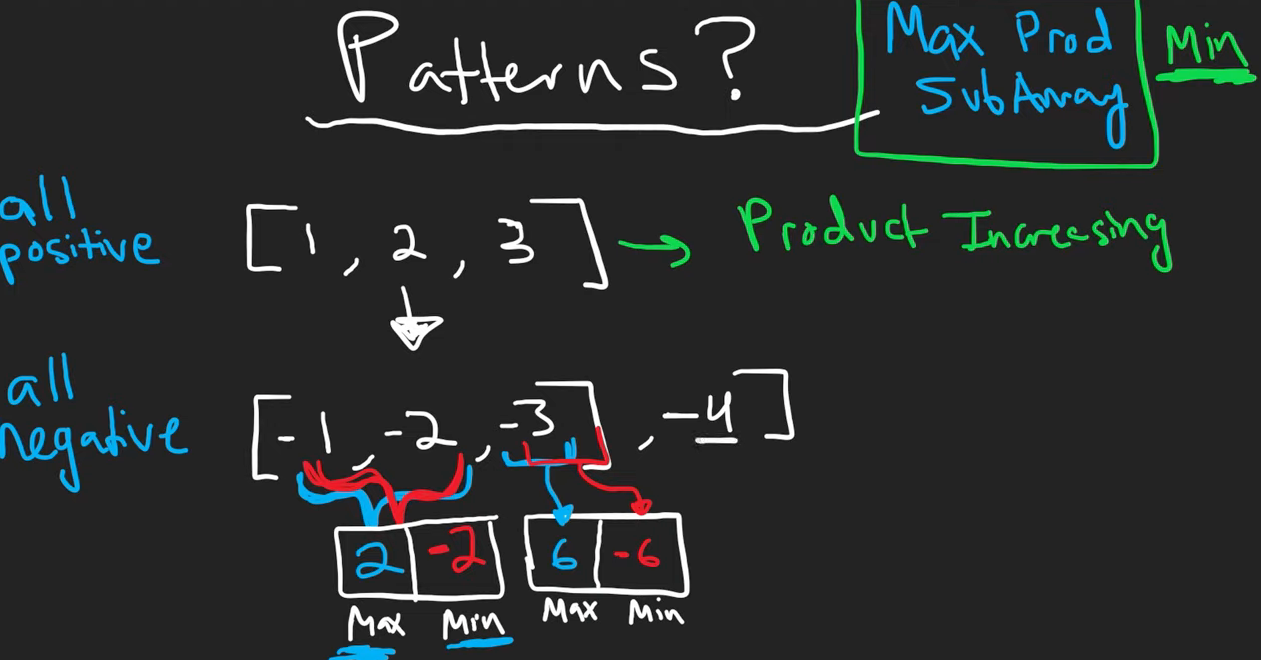 Patterns?
Max Prod
SubArray
Min
all
positive
[1, 2, 3] → Product Increasing
all
negative
[-1, -2, -3], -4]
2 -2 6 -6
Max Min Max Min